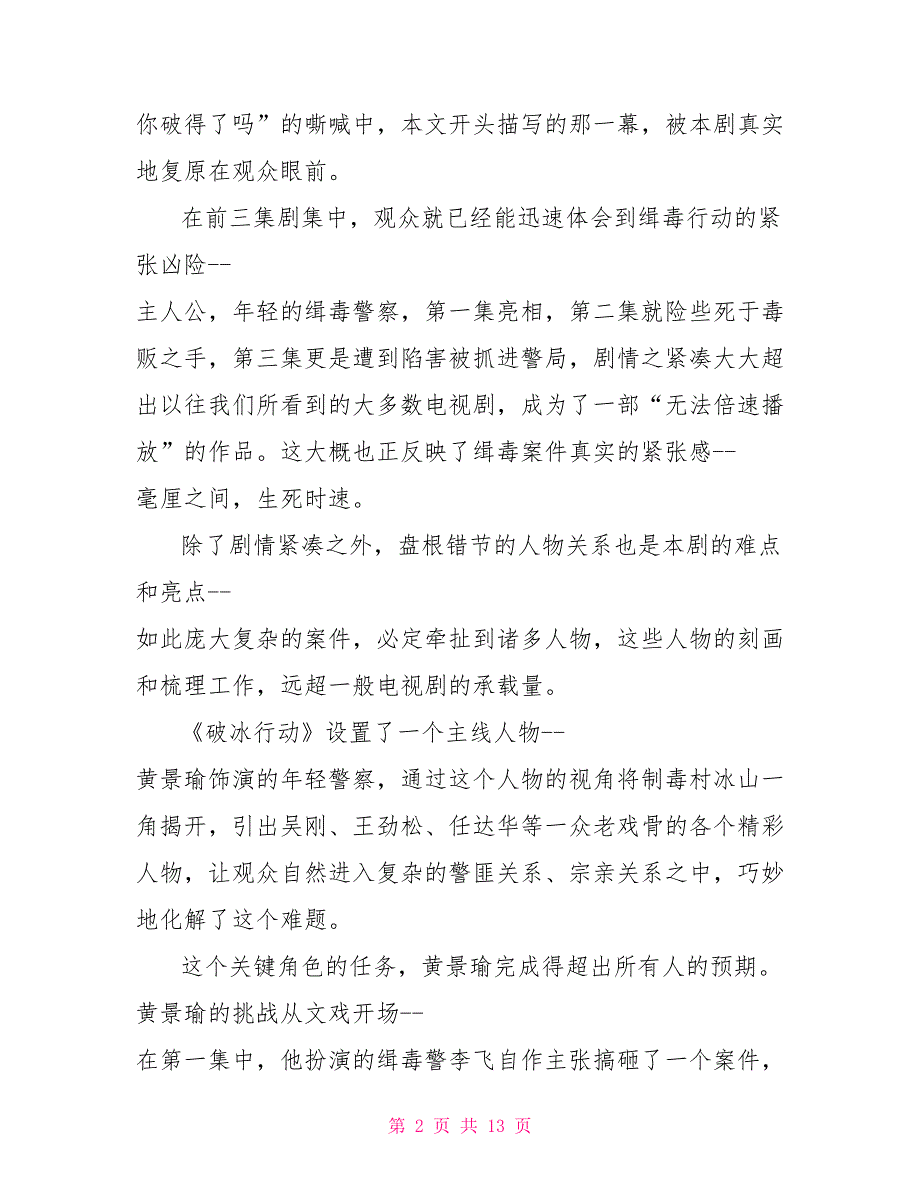 你破得了吗”的嘶喊中，本文开头描写的那一幕，被本剧真实
地复原在观众眼前。
在前三集剧集中，观众就已经能迅速体会到缉毒行动的紧
张凶险--
主人公，年轻的缉毒警察，第一集亮相，第二集就险些死于毒
贩之手，第三集更是遭到陷害被抓进警局，剧情之紧凑大大超
出以往我们所看到的大多数电视剧，成为了一部“无法倍速播
放”的作品。这大概也正反映了缉毒案件真实的紧张感--
毫厘之间，生死时速。
除了剧情紧凑之外，盘根错节的人物关系也是本剧的难点
和亮点--
如此庞大复杂的案件，必定牵扯到诸多人物，这些人物的刻画
和梳理工作，远超一般电视剧的承载量。
《破冰行动》设置了一个主线人物--
黄景瑜饰演的年轻警察，通过这个人物的视角将制毒村冰山一
角揭开，引出吴刚、王劲松、任达华等一众老戏骨的各个精彩
人物，让观众自然进入复杂的警匪关系、宗亲关系之中，巧妙
地化解了这个难题。
这个关键角色的任务，黄景瑜完成得超出所有人的预期。
黄景瑜的挑战从文戏开场--
在第一集中，他扮演的缉毒警李飞自作主张搞砸了一个案件，
第 2 页 共 13 页